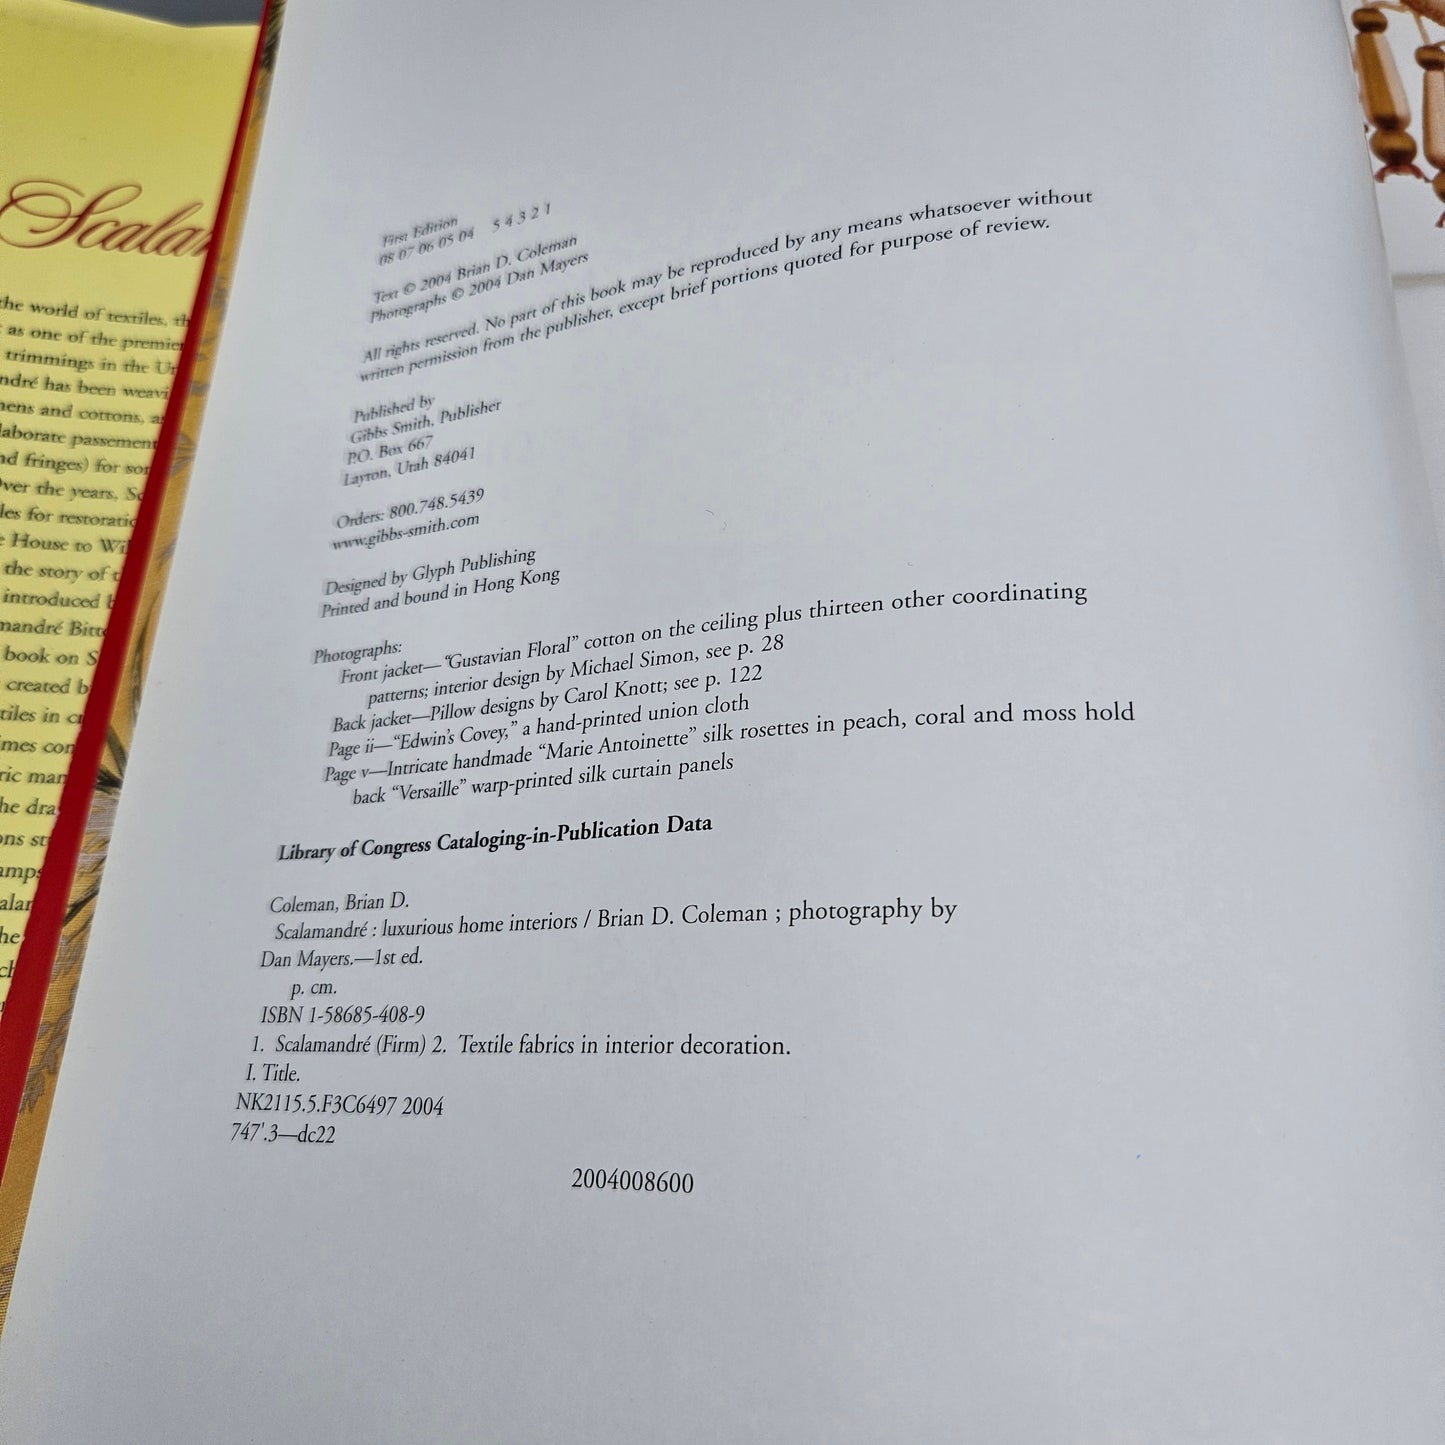 Scalam
the world of textiles, th
as one of the premier
trimmings in the Un
ndré has been weavi
nens and cottons, a
laborate passement
nd fringes) for som
Over the years, Sc
les for restoratio
e House to Wil
the story of t
introduced b
mandré Bitte
book on S
created b
tiles in cu
imes con
ric man
he dra
ons st
amps
alar
he
ch
First Edition
08 07 06 05 04 5 4 3 2 1
Text © 2004 Brian D. Coleman
Photographs © 2004 Dan Mayers
All rights reserved. No part of this book may be reproduced by any means whatsoever without
written permission from the publisher, except brief portions quoted for purpose of review.
Published by
Gibbs Smith, Publisher
P.O. Box 667
Layton, Utah 84041
Orders: 800.748.5439
www.gibbs-smith.com
Designed by Glyph Publishing
Printed and bound in Hong Kong
Photographs:
Front jacket—“Gustavian Floral” cotton on the ceiling plus thirteen other coordinating
patterns; interior design by Michael Simon, see p. 28
Back jacket—Pillow designs by Carol Knott; see p. 122
Page ii—“Edwin’s Covey,” a hand-printed union cloth
Page v—Intricate handmade “Marie Antoinette” silk rosettes in peach, coral and moss hold
back “Versaille” warp-printed silk curtain panels
Library of Congress Cataloging-in-Publication Data
Coleman, Brian D.
Scalamandré : luxurious home interiors / Brian D. Coleman ; photography by
Dan Mayers.—1st ed.
p. cm.
ISBN 1-58685-408-9
1. Scalamandré (Firm) 2. Textile fabrics in interior decoration.
I. Title.
NK2115.5.F3C6497 2004
747'.3—dc22
2004008600